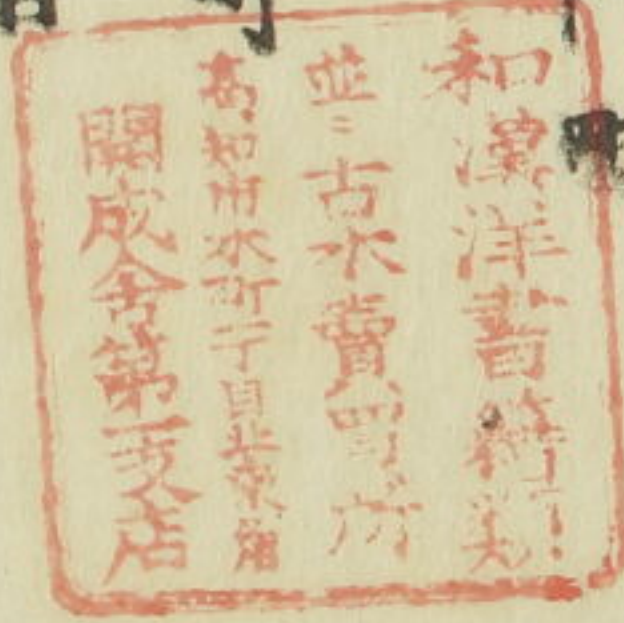 和漢洋書籍
並ニ古本賣買所
高知市本町一丁目北
開成舍第一支店